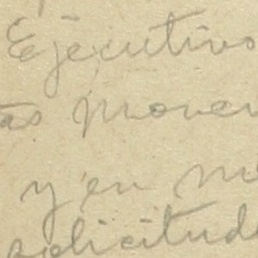 Ejecutivo
as moven
y en m
solicitud